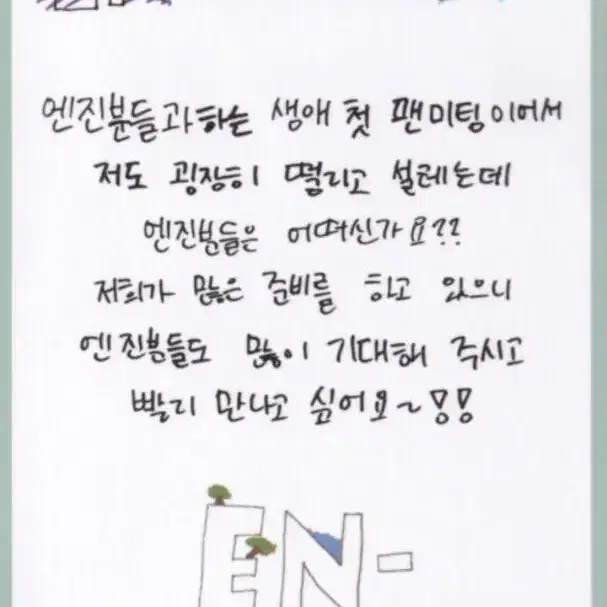 엔진분들과 하는 생애 첫 팬미팅이어서
저도 굉장히 떨리고 설레는데
엔진분들은 어떠신가요??
저희가 많은 준비를 하고 있으니
엔진분들도 많이 기대해 주시고
빨리 만나고 싶어요~!!
EN-